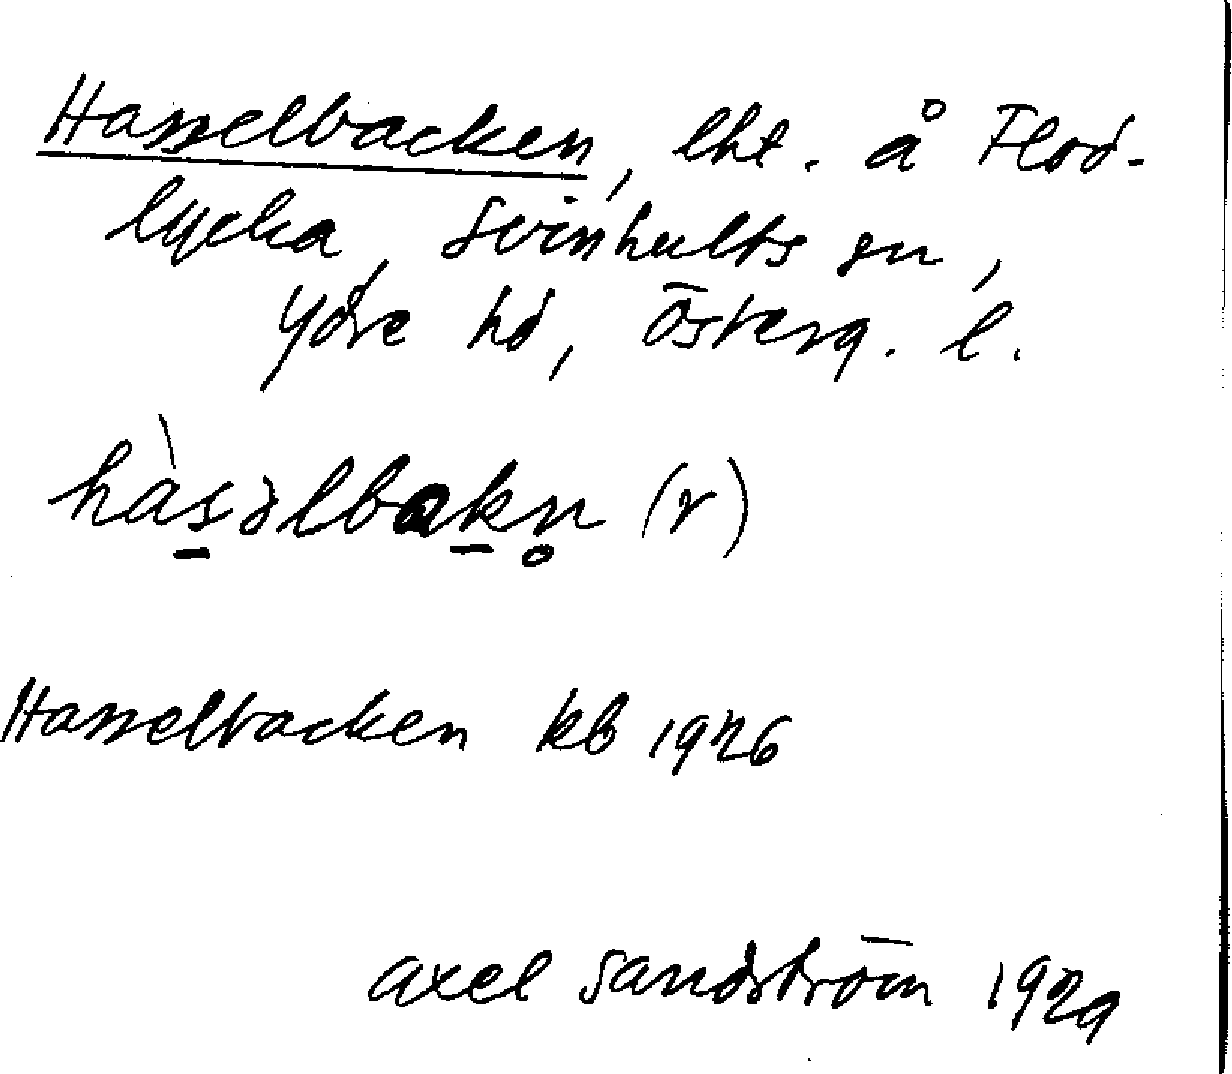 Hasselbacken, lht. å Flod-
lycka, Svinhults sn,
Ydre hd, Österg. l.
hàs̠əlbak̠n̥ (r)
Hasselbacken kb 1926
Axel Sandström 1929